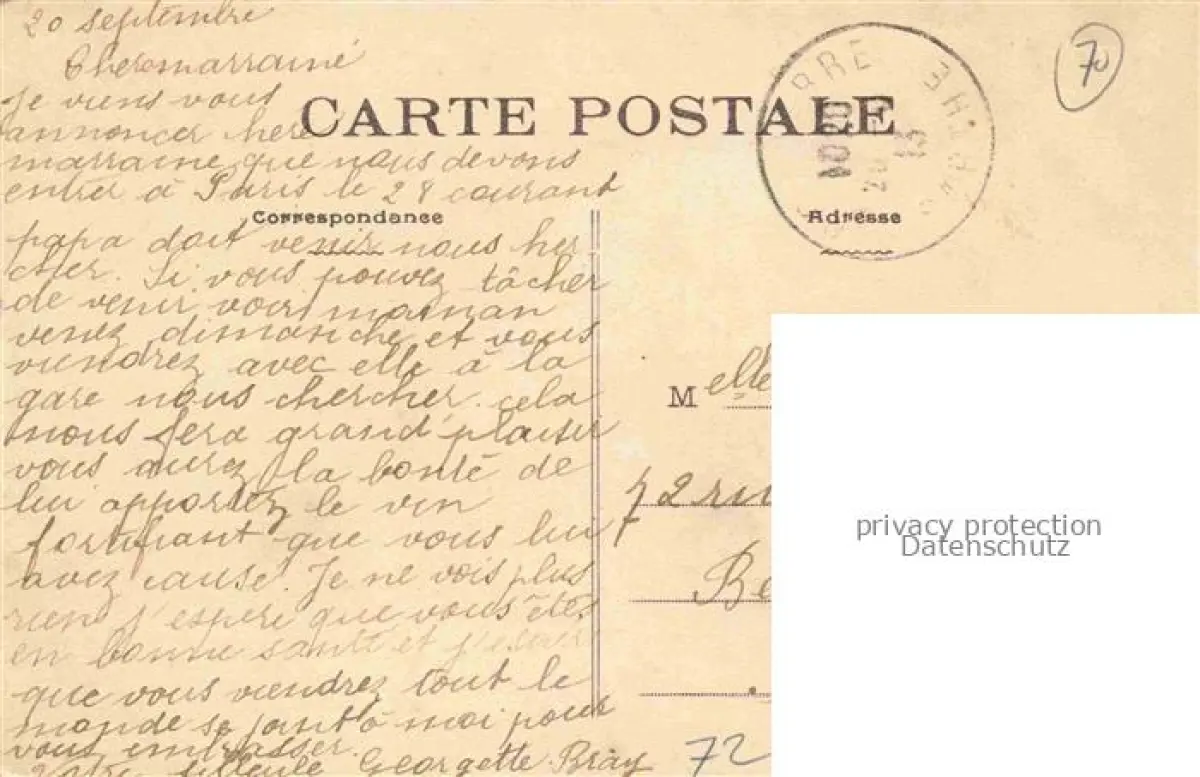 20 septembre
Chere marraine
Je viens vous
annoncer here
marraine que nous devons
entrer à Paris le 28 courant
papa doit venir nous her
cher. Si vous pouvez tâcher
de venir voir maman
venez dimanche et vous
viendrez avec elle à la
gare nous chercher. cela
nous fera grand plaisir
vous aurez la bonté de
lui apportez le vin
fortifiant que vous lui
avez causé. Je ne vois plus
rien j'espere que vous êtes
en bonne santé et j'espere
que vous viendrez tout le
monde se joint à moi pour
vous embrasser.
Votre filleule Georgette Bray
CARTE POSTALE
Correspondance
Adresse
70
M elle
72 ru
Be
72
privacy protection
Datenschutz